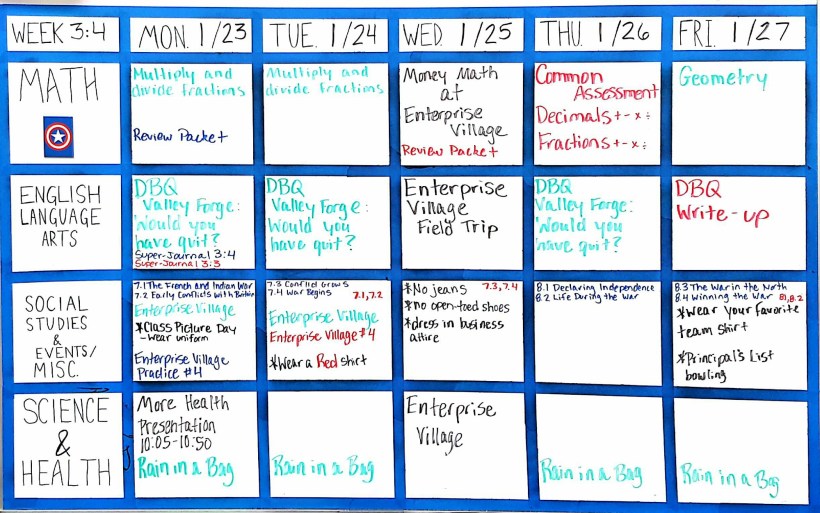 WEEK 3:4
MON. 1/23
TUE. 1/24
WED. 1/25
THU. 1/26
FRI. 1/27
MATH
Multiply and
divide fractions
Review Packet
Multiply and
divide fractions
Money Math
at
Enterprise
Village
Review Packet
Common
Assessment
Decimals + - x ÷
Fractions + - x ÷
Geometry
ENGLISH
LANGUAGE
ARTS
DBQ
Valley Forge:
Would you
have quit?
Super-Journal 3:4
Super-Journal 3:3
DBQ
Valley Forge:
Would you
have quit?
Enterprise
Village
Field Trip
DBQ
Valley Forge:
Would you
have quit?
DBQ
Write-up
SOCIAL
STUDIES
&
EVENTS/
MISC.
7.1 The French and Indian War
7.2 Early Conflicts with Britain
Enterprise Village
*Class Picture Day
-Wear uniform
Enterprise Village
Practice #4
7.3 Conflict Grows
7.4 War Begins 7.1, 7.2
Enterprise Village
Enterprise Village #4
*Wear a Red shirt
*No jeans 7.3, 7.4
*no open-toed shoes
*dress in business
attire
8.1 Declaring Independence
8.2 Life During the War
8.3 The War in the North
8.4 Winning the War 8.1, 8.2
*Wear your favorite
team shirt
*Principal's List
bowling
SCIENCE
&
HEALTH
More Health
Presentation
10:05-10:50
Rain in a Bag
Rain in a Bag
Enterprise
Village
Rain in a Bag
Rain in a Bag